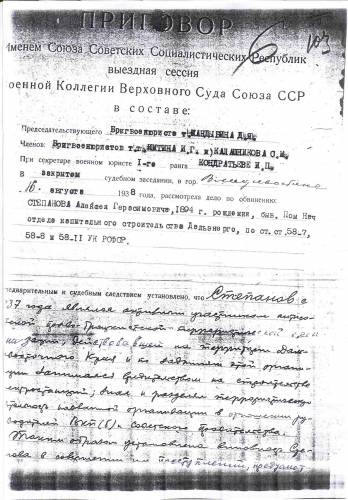 ПРИГОВОР
6 103
именем Союза Советских Социалистических Республик
выездная сессия
оенной Коллегии Верховного Суда Союза ССР
в составе:
Председательствующего Бригвоенюриста т.КАНДЫБИНА Д.Я.
Членов Бригвоенюристов т.т.МИТИНА И.Г. и КАЛАШНИКОВА С.И.
При секретаре военном юристе I-го ранга КОНДРАТЬЕВЕ И.П.
в закрытом судебном заседании, в гор.
"16" августа 1938, рассмотрела дело по обвинению:
СТЕПАНОВА Алексея Герасимовича, 1894 г. рождения, быв. Пом Нач
отдела капительного строительства Дальэнерго, по ст.ст.58-7,
58-8 и 58-II УК РСФСР.
редварительным и судебным следствием установлено, что Степанов с
37 года являлся активным участником антисо-
ской право-троцкистской террористической орга-
низации, действовавшей на территории Даль-
восточного Края и по заданию этой органи-
зации занимался вредительством на строительстве
электростанций; знал и разделял террористические
названной организации в отношении ру-
водителей ВКП(б) и советского правительства.
Таким образом установлена виновность Сте-
нова в совершении им преступлений, предусмот